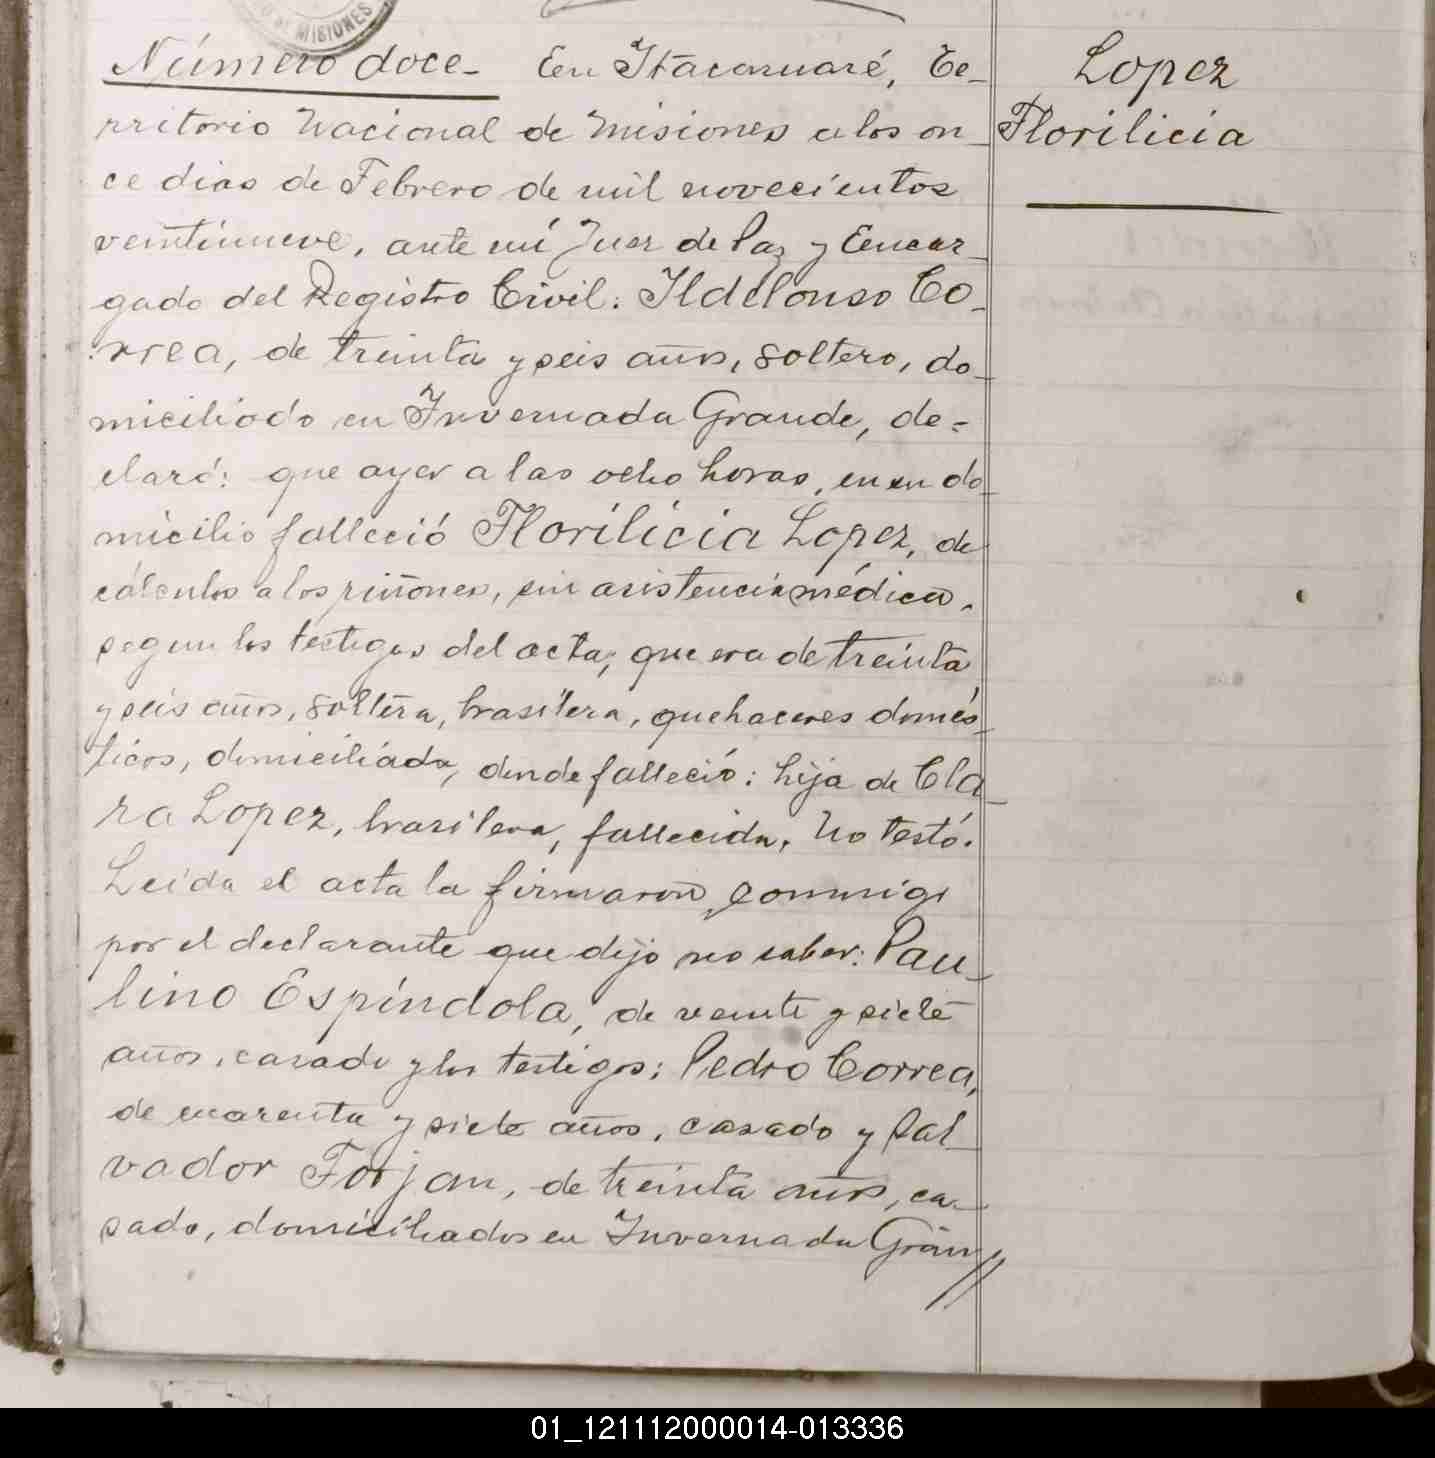 O DE MISIONES
Número doce_ En Itacaruaré, Te_
rritorio Nacional de Misiones a los on_
ce dias de Febrero de mil novecientos
veintinueve, ante mí Juez de Paz y Encar_
gado del Registro Civil: Ildefonso Co_
rrea, de treinta y seis años, soltero, do_
miciliado en Invernada Grande, de=
claró: que ayer a las ocho horas, en su do_
micilio falleció Florilicia Lopez, de
cálculos a los riñones, sin asistencia médica,
segun los testigos del acta; que era de treinta
y seis años, soltera, brasilera, quehaceres domés_
ticos, domiciliada, donde falleció: hija de Cla_
ra Lopez, brasilera, fallecida, No testó.
Leida el acta la firmaron conmigo
por el declarante que dijo no saber: Pau_
lino Espíndola, de veinte y siete
años, casado y los testigos: Pedro Correa,
de cuarenta y siete años, casado y Sal_
vador Forjan, de treinta años, ca_
sado, domiciliados en Invernada Gran//
Lopez
Florilicia
01_121112000014-013336